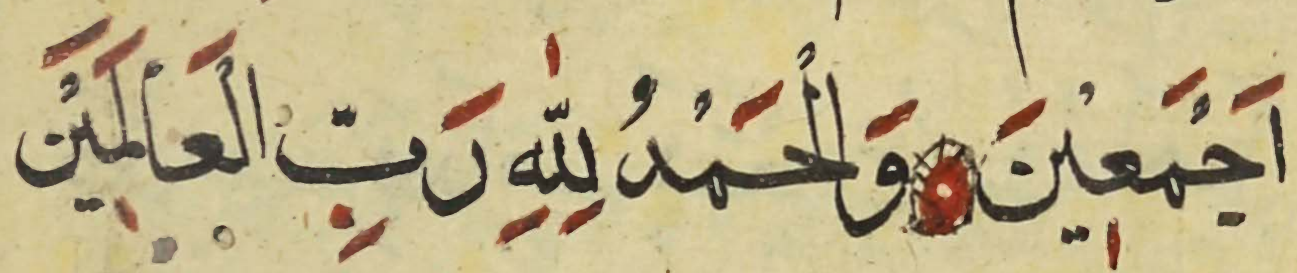 اَجْمَعِيْنَ وَالْحَمْدُ لِلّٰهِ رَبِّ الْعَالَمِيْنَ